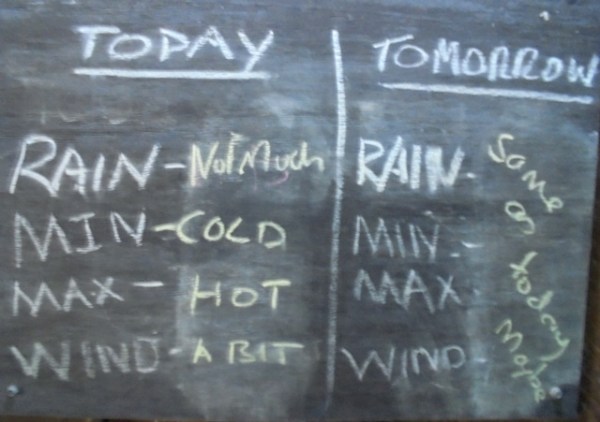 TODAY
RAIN - Not Much
MIN - COLD
MAX - HOT
WIND - A BIT
TOMORROW
RAIN -
MIN -
MAX
WIND -
Same as today Maybe